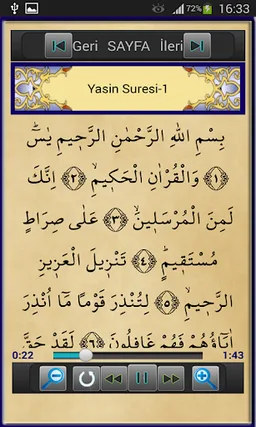 72% 16:33
Geri SAYFA İleri
Yasin Suresi-1
بِسْمِ اللّٰهِ الرَّحْمٰنِ الرَّحٖيمِ يٰسٓ
﴿١﴾ وَالْقُرْاٰنِ الْحَكٖيمِۙ ﴿٢﴾ اِنَّكَ
لَمِنَ الْمُرْسَلٖينَۙ ﴿٣﴾ عَلٰى صِرَاطٍ
مُسْتَقٖيمٍۜ ﴿٤﴾ تَنْزٖيلَ الْعَزٖيزِ
الرَّحٖيمِۙ ﴿٥﴾ لِتُنْذِرَ قَوْمًا مَٓا اُنْذِرَ
اٰبَٓاؤُ۬هُمْ فَهُمْ غَافِلُونَ ﴿٦﴾ لَقَدْ حَقَّ
0:22 1:43